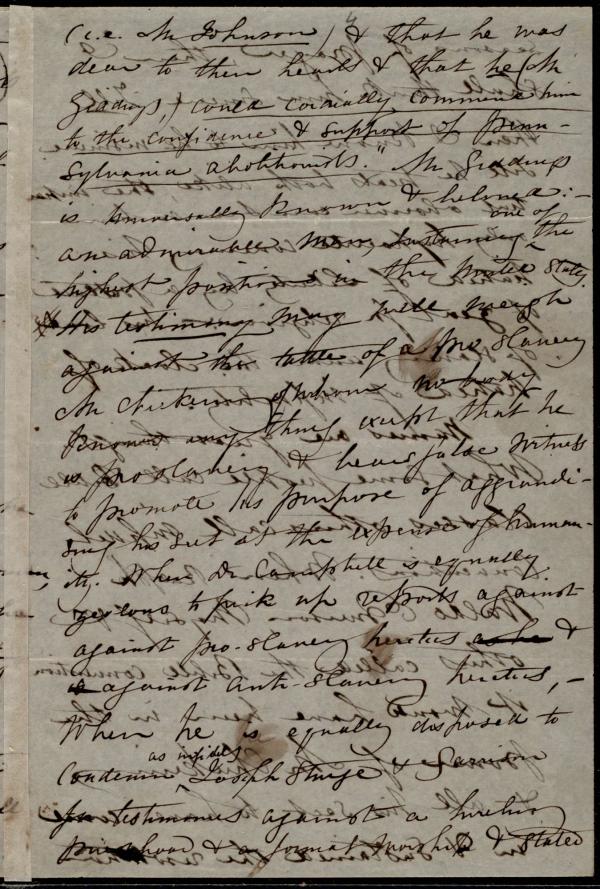 (i.e. Mr Johnson) & that he was
dear to their hearts & that he (Mr
Giddings,) could cordially commend him
to the confidence & support of Penn-
sylvania abolitionists." Mr Giddings
is universally known & beloved:-
an admirable man, sustaining one of the
highest positions in the United States.
His testimony may well weigh
against the tattle of a pro slavery
Mr of whom nobody
knows any thing except that he
is pro slavery & bears false witness
to promote his purpose of aggrandi-
sing his sect at the expense of human-
ity. When Dr Campbell is equally
zealous to pick up reports against
against pro-slavery heretics as he &
is against anti-slavery heretics,-
When he is equally disposed to
condemn as infidels Joseph Sturge & Garrison
for testimonies against a hireling
priesthood & a formal worship & stated